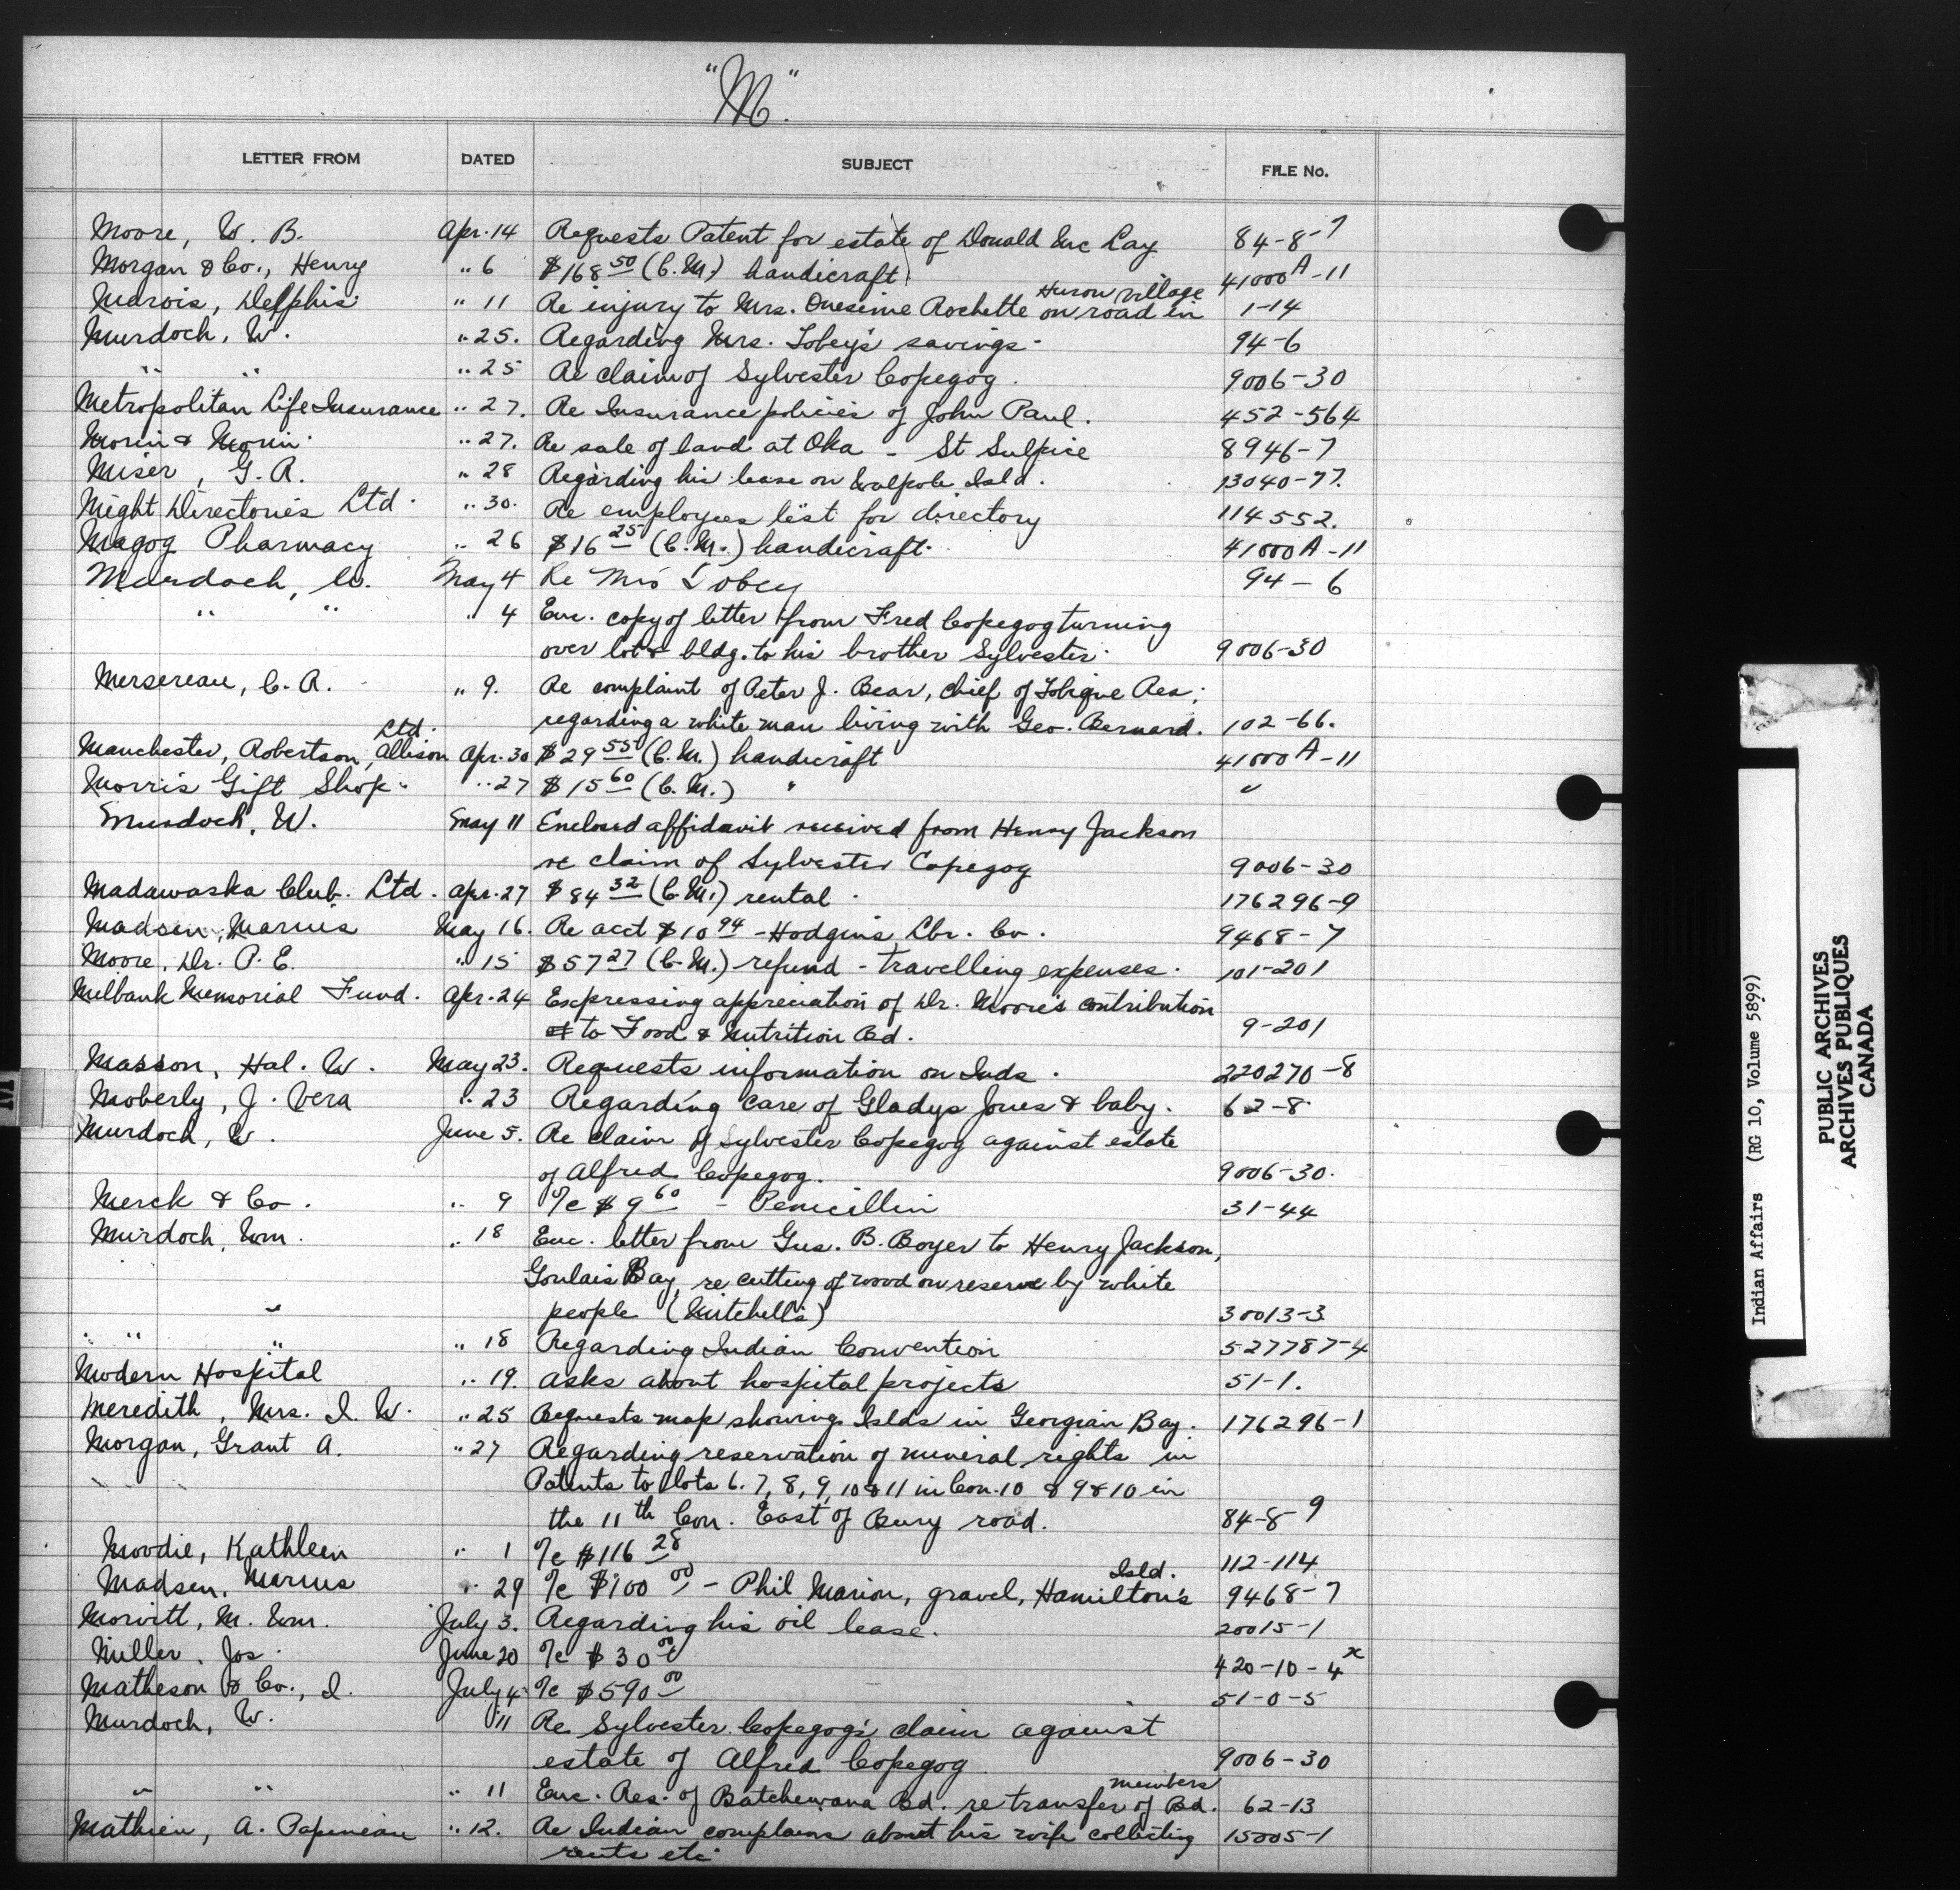 "M"
LETTER FROM DATED SUBJECT FILE No.
Moore, W. B. Apr. 14 Requests Patent for estate of Donald Mc Cay 84-8-7
Morgan & Co., Henry " 6 $168 50 (C.M.) handicraft 41000A-11
Huron Village
Marois, Delphis " 11 Re injury to Mrs. Onesime Rochette on road in 1-14
Murdoch, W. " 25. Regarding Mrs. Tobey's savings 94-6
" " " 25 Re claim of Sylvester Copegog. 9006-30
Metropolitan Life Insurance " 27. Re Insurance policies of John Paul. 452-564
Morin & Morin " 27. Re sale of land at Oka - St Sulpice 8946-7
Miser, G. R. " 28 Regarding his lease on Walpole Isld. 13040-77.
Might Directories Ltd. " 30. Re employees list for directory 114552.
Magog Pharmacy " 26 $16 25 (C.M.) handicraft. 41000A-11
Murdoch, W. May 4 Re Mrs Tobey 94-6
" " " 4 Enc. copy of letter from Fred Copegog turning
over lot & bldg. to his brother Sylvester. 9006-30
Mersereau, C. R. " 9. Re complaint of Peter J. Bear, Chief of Tobique Res;
regarding a white man living with Geo. Bernard. 102-66.
Ltd.
Manchester, Robertson, Allison Apr. 30 $29 55 (C.M.) handicraft 41000A-11
Morris Gift Shop. " 27 $15 60 (C.M.) " "
Murdoch, W. May 11 Enclosed affidavit received from Henry Jackson
re claim of Sylvester Copegog 9006-30
Madawaska Club. Ltd. Apr. 27 $84 32 (C.M.) rental. 176296-9
Madsen, Marius May 16. Re acct $10 94 - Hodgins Lbr. Co. 9468-7
Moore, Dr. P. E. " 15 $57 27 (C.M.) refund - travelling expenses. 101-201
Milbank Memorial Fund. Apr. 24 Expressing appreciation of Dr. Moore's contribution
to Food & Nutrition Bd. 9-201
Masson, Hal. W. May 23. Requests information on Inds. 220270-8
Moberly, J. Vera " 23 Regarding care of Gladys Jones & baby. 62-8
Murdoch, W. June 5. Re claim of Sylvester Copegog against estate
of Alfred Copegog. 9006-30.
Merck & Co. " 9 %c $9 60 - Penicillin 31-44
Murdoch, Wm. " 18 Enc. letter from Gus. B. Boyer to Henry Jackson,
Goulais Bay, re cutting of wood on reserve by white
" people (Mitchells) 30013-3
" " " " 18 Regarding Indian Convention 527787-4
Modern Hospital " 19. Asks about hospital projects 51-1.
Meredith, Mrs. I. W. " 25 Requests map showing Islds in Georgian Bay. 176296-1
Morgan, Grant A. " 27 Regarding reservation of mineral rights in
Patents to lots 6. 7, 8, 9, 10 & 11 in Con. 10 & 9 & 10 in
the 11th Con. East of Bury road. 84-8-9
Moodie, Kathleen " 1 %c $116 28 112-114
Isld.
Madsen, Marius " 29 %c $100 00 - Phil Marion, gravel, Hamilton's 9468-7
Morvitt, M. Wm. July 3. Regarding his oil lease. 20015-1
Miller, Jos. June 20 %c $30 00 420-10-4x
Matheson & Co., I. July 4 %c $590 00 51-0-5
Murdoch, W. " 11 Re Sylvester Copegog's claim against
estate of Alfred Copegog 9006-30
members
" " " 11 Enc. Res. of Batchewana Bd. re transfer of Bd. 62-13
Mathieu, A. Papineau " 12. Re Indian complains about his wife collecting 15005-1
rents etc.
M
Indian Affairs (RG 10, Volume 5899)
PUBLIC ARCHIVES
ARCHIVES PUBLIQUES
CANADA